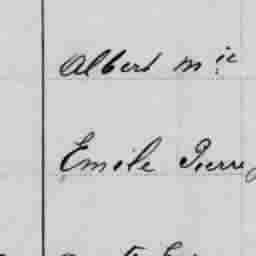 Albert Mie
Emile Pierre